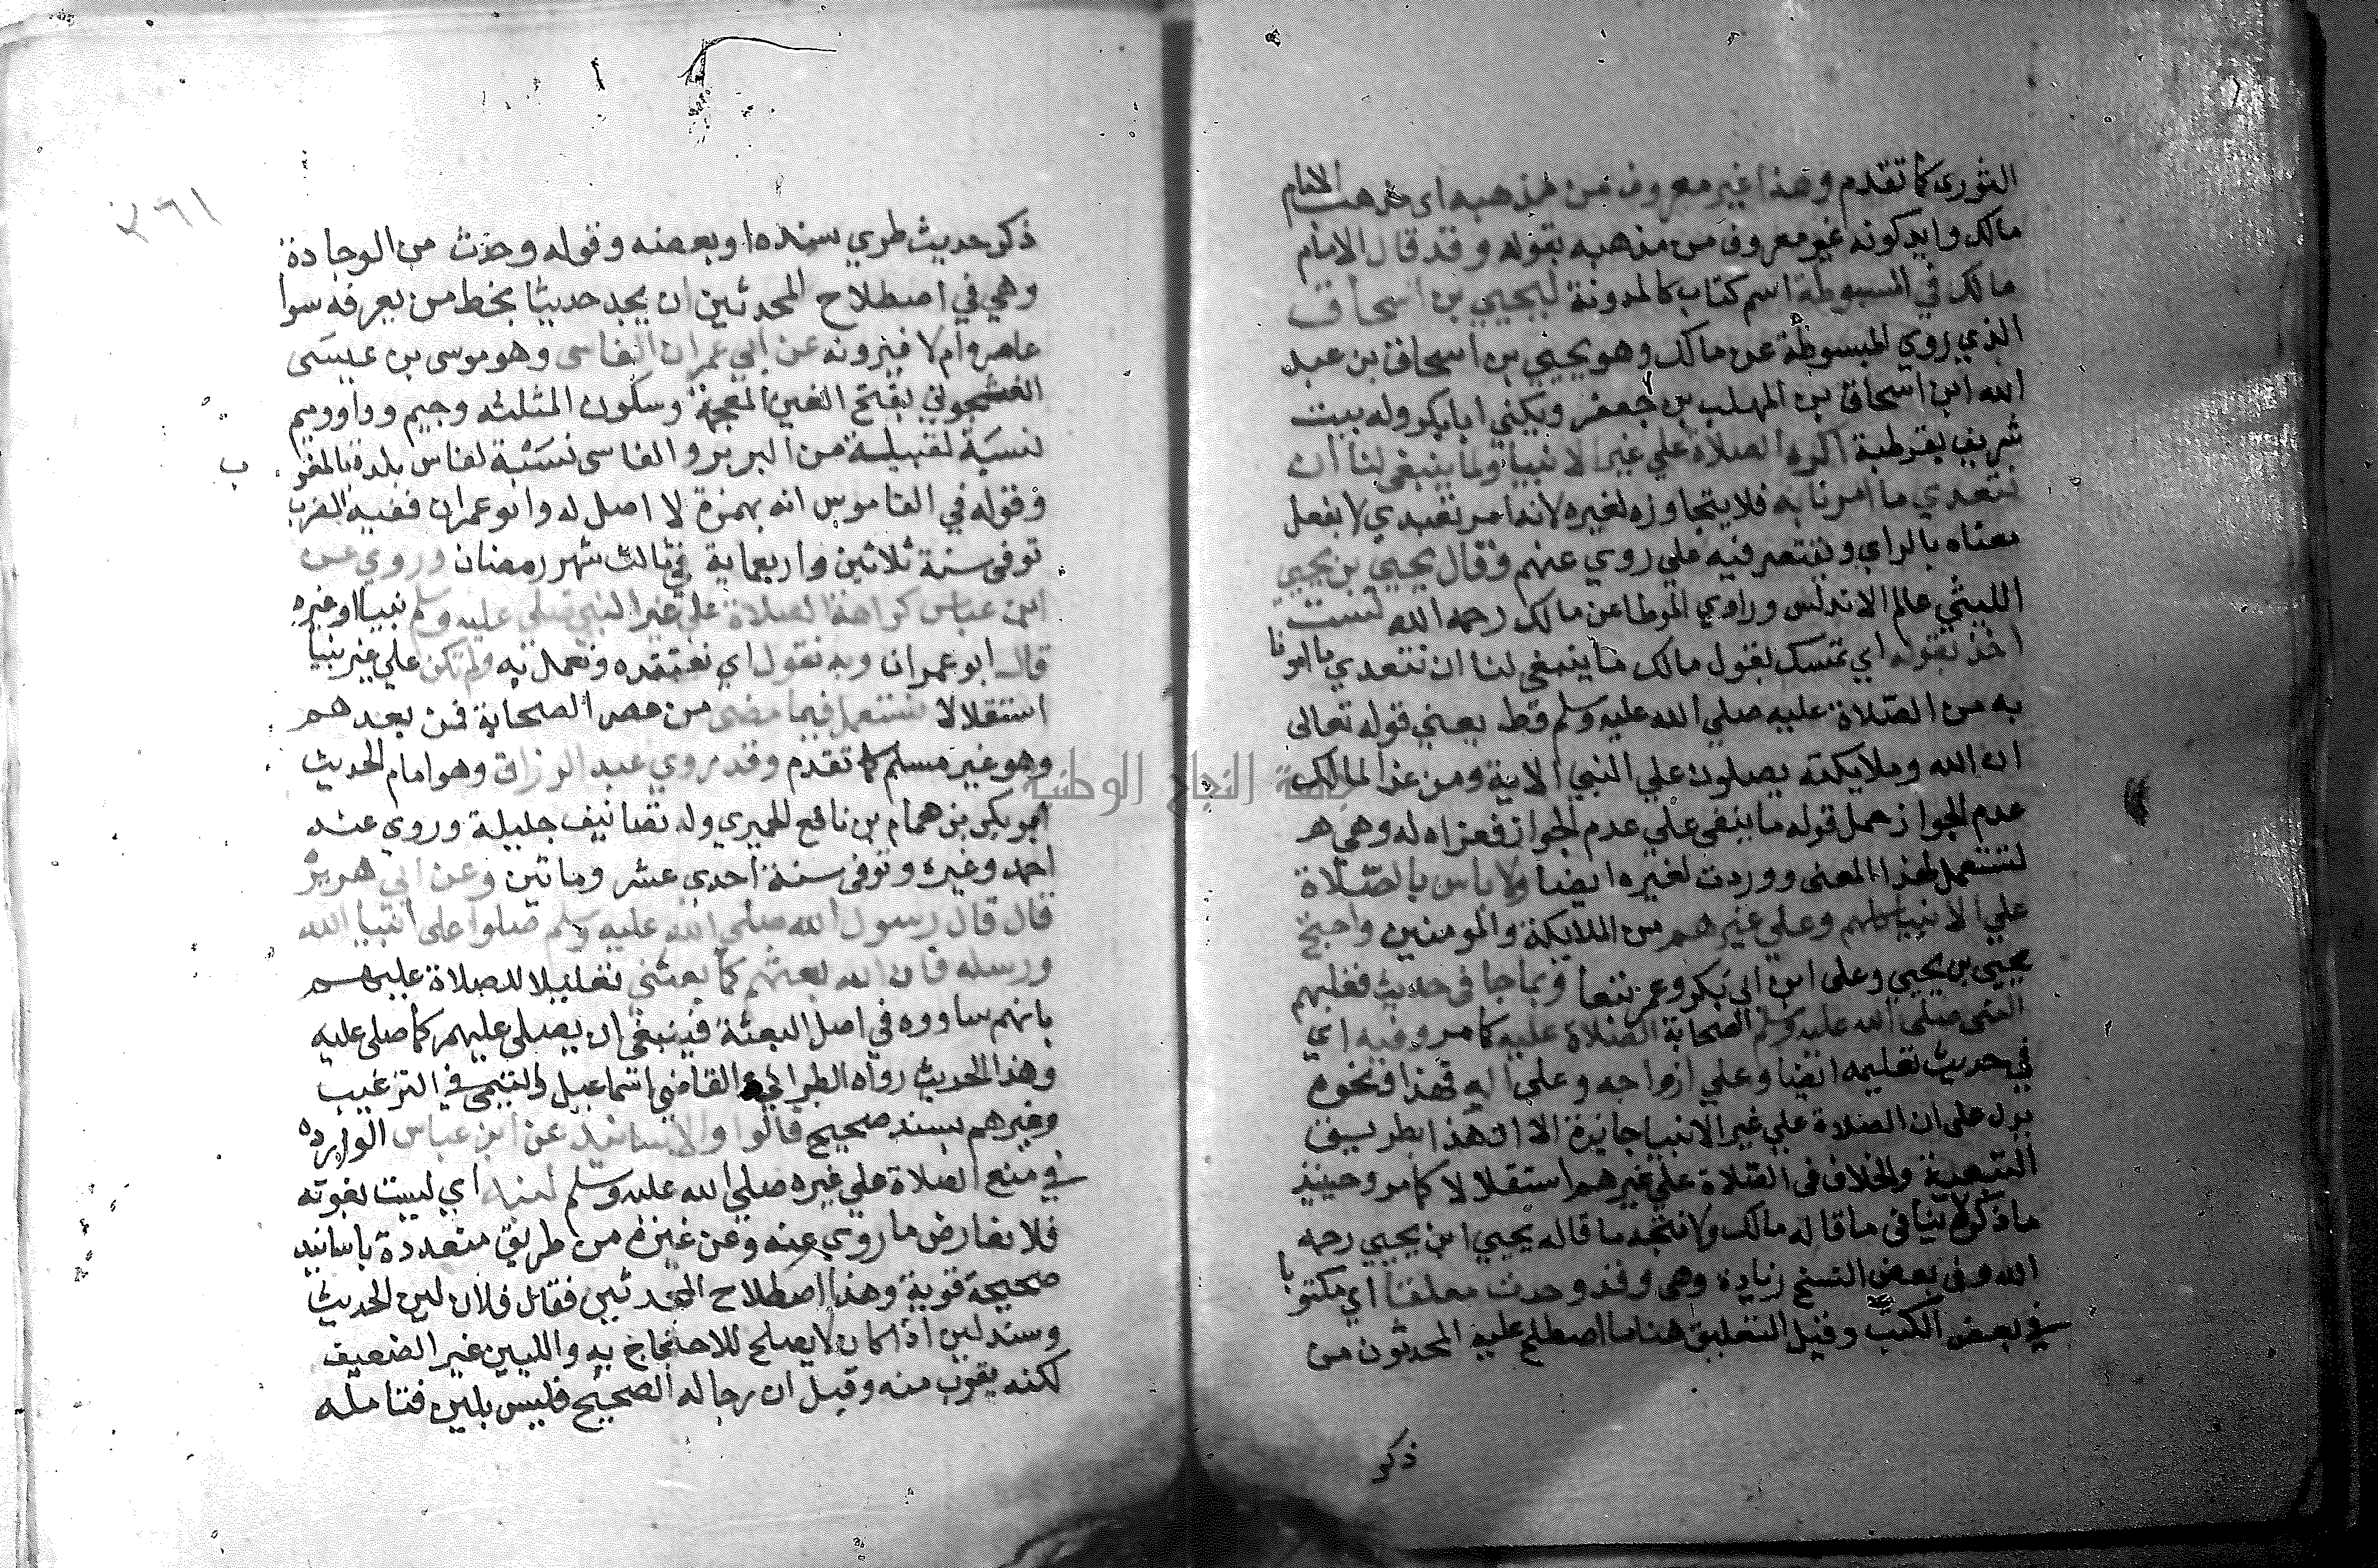 الثوري كما تقدم وهذا غير معروف من مذهبه اي مذهب الامام
مالك وايد كونه غير معروف من مذهبه بقوله وقد قال الامام
مالك في المبسوطة اسم كتاب كالمدونة ليحيي بن اسحاق
الذي روي المبسوطة عن مالك وهو يحيي بن اسحاق بن عبد
الله ابن اسحاق بن المهلب بن جعفر ويكني ابا بكر وله بيت
شريف بقرطبة اكره الصلاة علي غير الانبيا ولما ينبغي لنا ان
نتعدي ما امرنا به فلا يتجاوزه لغيره لانه امر تعبدي لا يفعل
معناه بالراي ويقتصر فيه علي روي عنهم وقال يحيي بن يحيي
الليثي عالم الاندلس وراوي الموطا عن مالك رحمه الله لست
اخذ بقوله اي تمسك بقول مالك ما ينبغي لنا ان نتعدي ما امرنا
به من الصلاة عليه صلي الله عليه وسلم قط يعني قوله تعالى
ان الله وملايكته يصلون علي النبي الاية ومن عزا لمالك
عدم الجواز حمل قوله ما ينبغي علي عدم الجواز فعزاه له وهي هر
لتستعمل لهذا المعنى ووردت لغيره ايضا ولا باس بالصلاة
علي الانبيا كلهم وعلي غيرهم من الملايكة والمومنين واحتج
يحيي بن يحيي وعلى ابي بكر وعمر تبعا وبما جا في حديث فعلمهم
النبي صلى الله عليه وسلم الصحابة الصلاة عليه كما مر وفيه اي
في حديث تعليمه ايضا وعلي ازواجه وعلى اله فهذا ونحوه
يدل على ان الصلاة علي غير الانبيا جايزة الا ان هذا بطريق
التبعية والخلاف في الصلاة علي غيرهم استقلالا كما مر وحينيذ
ما ذكر لا ينافي ما قاله مالك ولا نتجه ما قاله يحيي ابن يحيي رحمه
الله وفي بعض النسخ زيادة وهي وقد وجدت معلقا اي مكتوبا
في بعض الكتب وقيل التعليق هنا ما اصطلح عليه المحدثون من
ذكر
٣٦١
ذكر حديث طري سنده او بعضه وقوله وجدت من الوجادة
وهي في اصطلاح المحدثين ان يجد حديثا بخط من يعرفه سوا
عاصره ام لا فيرونه عن ابي عمران الفاسى وهو موسى بن عيسى
الغثجوني بفتح الغين المعجمة وسكون المثلثه وجيم وواو وميم
نسبة لقبيلة من البربر والفاسى نسبة لفاس بلدة بالمغر
ب
وقوله في القاموس انه بهمزة لا اصل له وابو عمران فقيه الغرب
توفى سنة ثلاثين واربعماية في ثالث شهر رمضان وروي عن
ابن عباس كراهة الصلاة علي غير النبي صلى عليه وسلم نبيا او غيره
قال ابو عمران وبه نقول اي نعتقده ونعمل به ولم تكن علي غير نبينا
استقلالا تستعمل فيما مضى من عصر الصحابة فمن بعدهم
وهو غير مسلم كما تقدم وقد روي عبد الرزاق وهو امام الحديث
ابو بكر بن همام بن نافع الحميري وله تصانيف جليلة وروي عنه
احمد وغيره وتوفى سنة احدي عشر وماتين وعن ابي هريرة
قال قال رسول الله صلى الله عليه وسلم صلوا على انبيا الله
ورسله فان الله بعثهم كما بعثني تعليلا للصلاة عليهم
بانهم ساووه في اصل البعثة فينبغي ان يصلي عليهم كما صلى عليه
وهذا الحديث رواه الطبراني والقاضي اسماعيل والتيمي في الترغيب
وغيرهم بسند صحيح قالوا والاسانيد عن ابن عباس الواردة
في منع الصلاة علي غيره صلي الله عليه وسلم لينه اي ليست بقويه
فلا تعارض ما روي عنه وعن غيره من طريق متعددة باسانيد
صحيحة قوية وهذا اصطلاح المحدثين فقال فلان لين الحديث
وسند لين اذا كان لا يصلح للاحتجاج به واللين غير الضعيف
لكنه يقرب منه وقيل ان رجاله الصحيح فليس بلين فتامله
جامعة النجاح الوطنية